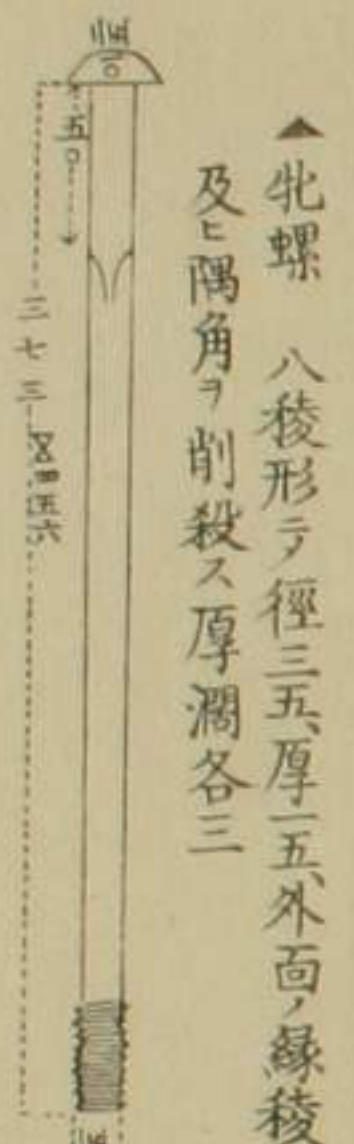 ▲牝螺 八稜形ニノ徑三五、厚一五、外面ノ縁稜
及ヒ隅角ヲ削殺ス厚濶各三
一〇
五〇
三七三